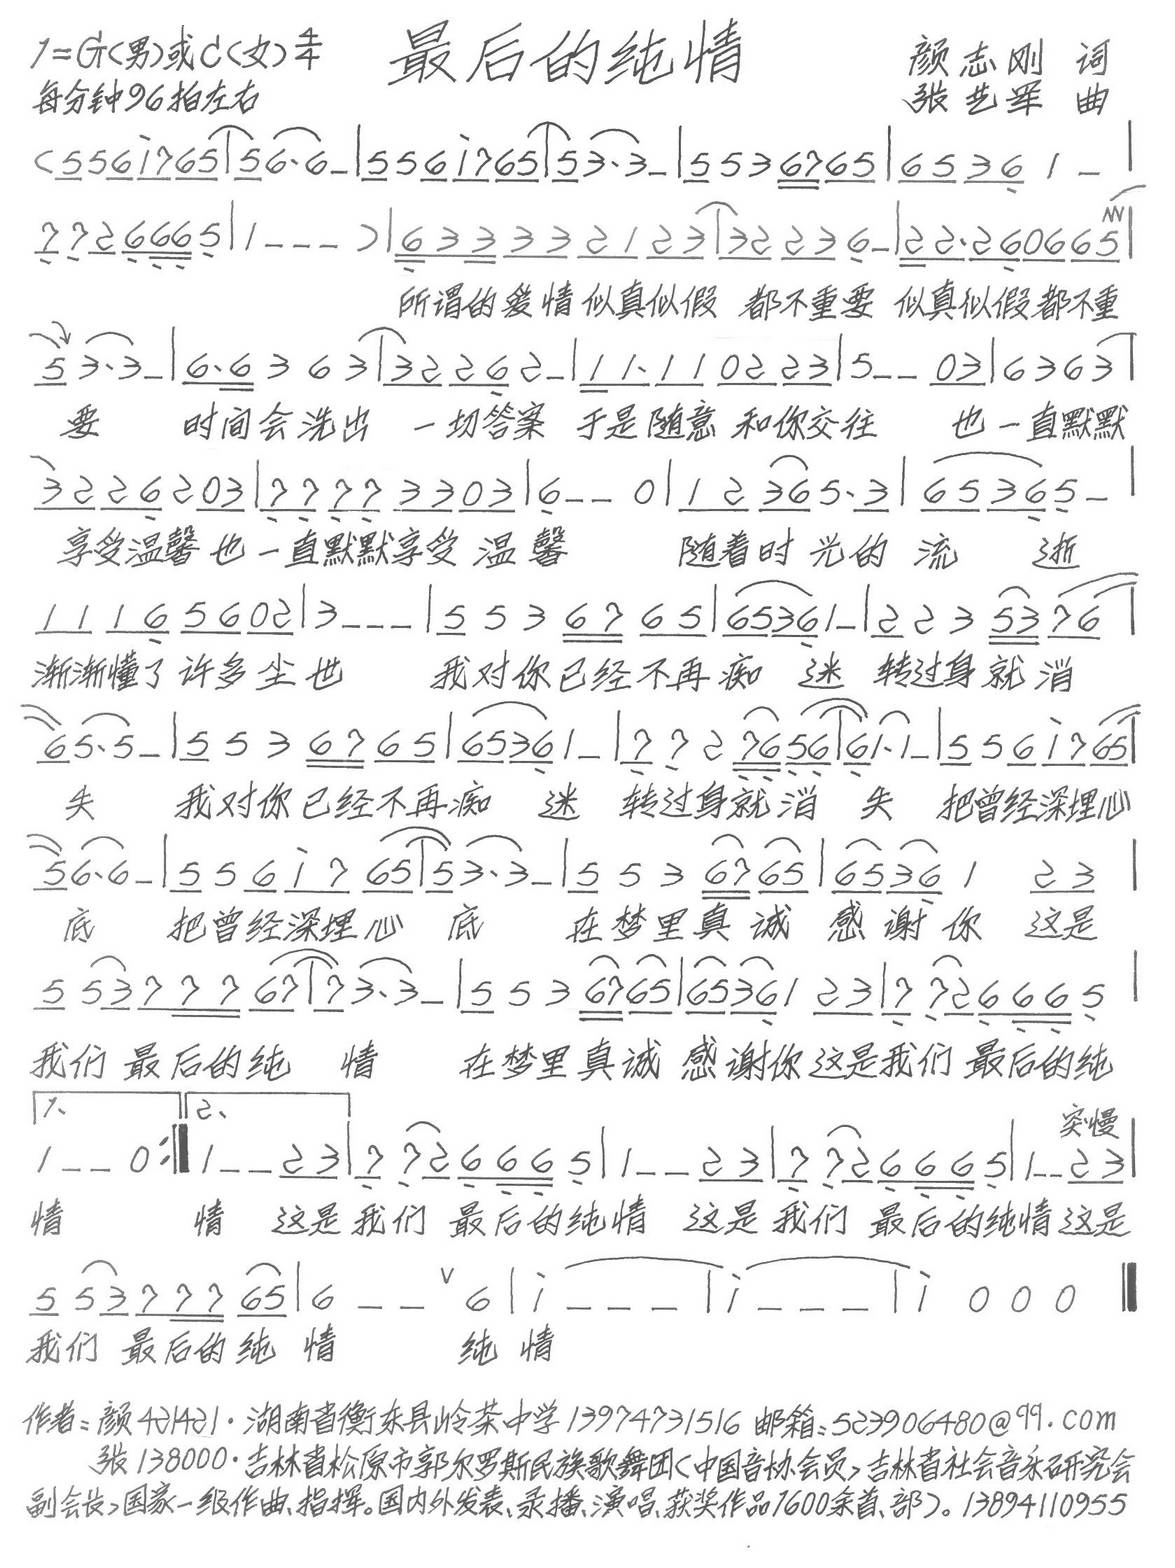 最后的纯情
1=G(男)或C(女) 4/4
每分钟96拍左右
颜志刚 词
张艺军 曲
(556i765|56·6-|556i765|53·3-|5536765|6536 1 -|
7726665|1---)|63333 2123|32236-|22·26066 5|
所谓的爱情似真似假 都不重要 似真似假都不重
53·3-|6·6 3 6 3|32262-|11·11 0223|5-- 03|6363|
要 时间会洗出 一切答案 于是随意和你交往 也一直默默
3226203|77773303|6--0|12365·3|65365-|
享受温馨也一直默默享受温馨 随着时光的流 逝
11165602|3---|5536765|65361-|2235376|
渐渐懂了许多尘世 我对你已经不再痴 迷 转过身就消
65·5-|5536765|65361-|7727656|61·1-|556i765|
失 我对你已经不再痴 迷 转过身就消 失 把曾经深埋心
56·6-|556i765|53·3-|5536765|6536 1 23|
底 把曾经深埋心 底 在梦里真诚 感谢你 这是
55377767|73·3-|5536765|6536123|77266 65|
我们最后的纯 情 在梦里真诚 感谢你这是我们最后的纯
1、 2、
1--0:|1--23|7726665|1--23|7726665|1--23|
突慢
情 情 这是我们 最后的纯情 这是我们 最后的纯情这是
55377765|6--∨6|i---|i---|i000‖
我们 最后的纯 情 纯 情
作者:颜421421·湖南省衡东县岭茶中学13974731516 邮箱:523906480@qq.com
张138000·吉林省松原市郭尔罗斯民族歌舞团(中国音协会员,吉林省社会音乐研究会
副会长,国家一级作曲、指挥。国内外发表、录播、演唱、获奖作品1600余首、部)。13894110955